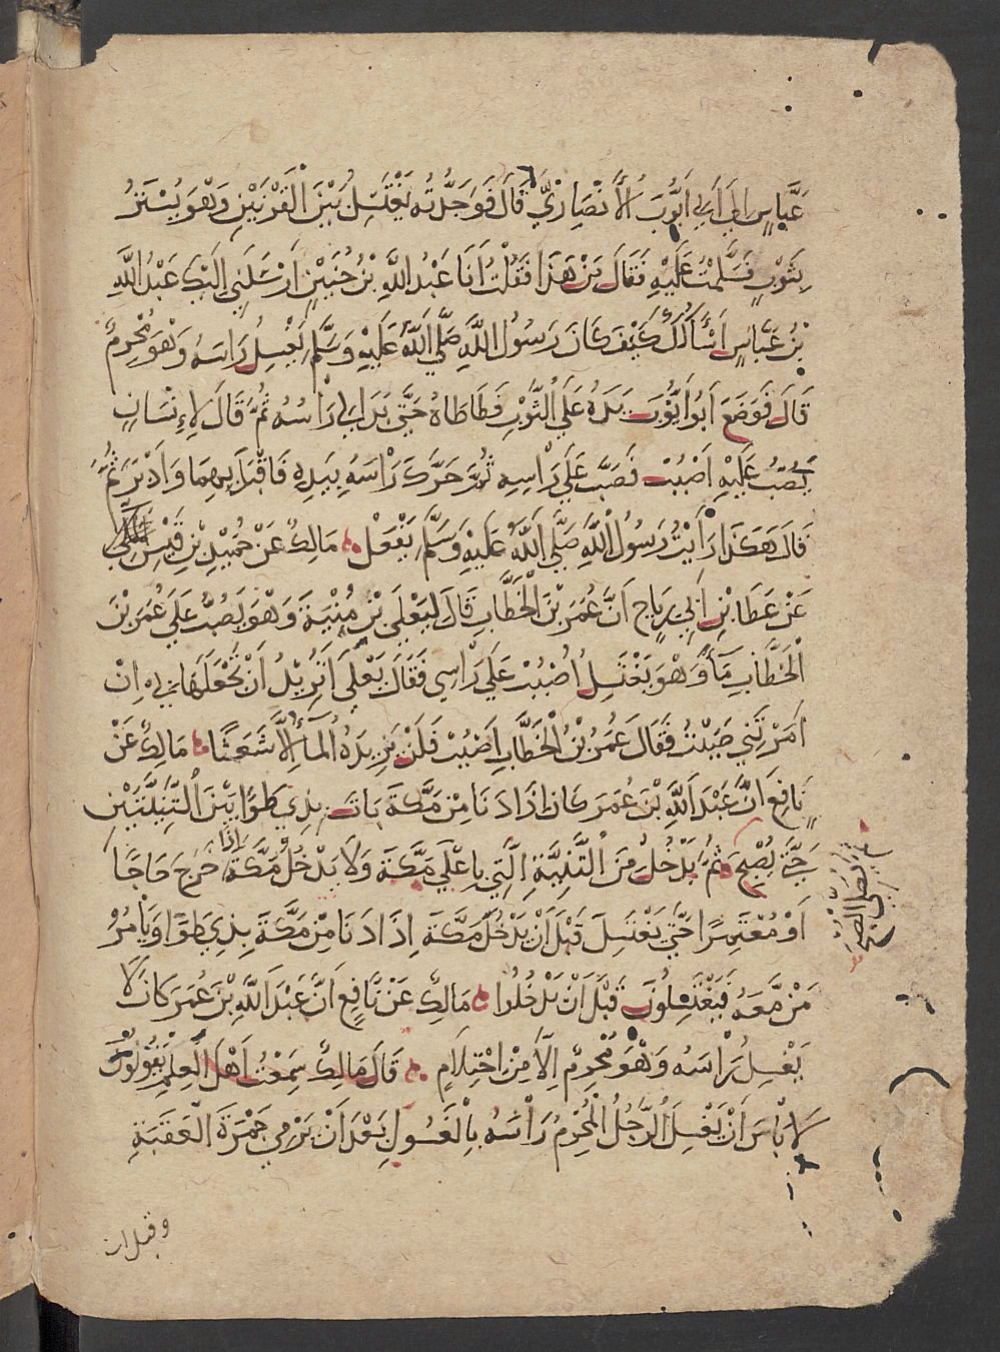 عَبَّاسٍ اِلَي اَبِي اَيُّوبَ الْأَنْصَارِيِّ قَالَ فَوَجَدْتُهُ يَغْتَسِلُ بَيْنَ الْقَرْنَيْنِ وَهْوَ يُسْتَرُ
بِثَوْبٍ فَسَلَّمْتُ عَلَيْهِ فَقَالَ مَنْ هَذَا فَقُلْتُ اَنَا عَبْدُ اللَّهِ بْنُ حُنَيْنٍ اَرْسَلَنِي اِلَيْكَ عَبْدُ اللَّهِ
بْنُ عَبَّاسٍ اَسْأَلُكَ كَيْفَ كَانَ رَسُولُ اللَّهِ صَلَّي اللَّهُ عَلَيْهِ وَسَلَّمَ يَغْسِلُ رَاسَهُ وَهْوَ مُحْرِمٌ
قَالَ فَوَضَعَ اَبُو اَيُّوبَ يَدَهُ عَلَي الثَّوْبِ فَطَاطَاهُ حَتَّي بَدَا لِي رَاْسُهُ ثُمَّ قَالَ لِاِنْسَانٍ
يَصُبُّ عَلَيْهِ اُصْبُبْ فَصَبَّ عَلَي رَاْسِهِ ثُمَّ حَرَّكَ رَاْسَهُ بِيَدِهِ فَاَقْبَلَ بِهِمَا وَاَدْبَرَ ثُمَّ
قَالَ هَكَذَا رَاَيْتُ رَسُولَ اللَّهِ صَلَّي اللَّهُ عَلَيْهِ وَسَلَّمَ يَفْعَلُ مَالِكٌ عَنْ حُمَيْدِ بْنِ قَيْسٍ الْمَكِّي
عَنْ عَطَا بْنِ اَبِي رَبَاحٍ اَنَّ عُمَرَ بْنَ الْخَطَّابِ قَالَ لِيَعْلَي بْنِ مُنْيَةَ وَهْوَ يَصُبُّ عَلَي عُمَرَ بْنَ
الْخَطَّابِ مَآءً وَهْوَ يَغْتَسِلُ اُصْبُبْ عَلَي رَاْسِي فَقَالَ يَعْلَي اَتُرِيدُ اَنْ تَجْعَلَهَا بِي اِنْ
اَمَرْتَنِي صَبَبْتُ فَقَالَ عُمَرُ بْنُ الْخَطَّابِ اُصْبُبْ فَلَنْ يَزِيدَهُ الْمَآءُ اِلَّا شَعَثًا مَالِكٌ عَنْ
نَافِعٍ اَنَّ عَبْدَ اللَّهِ بْنَ عُمَرَ كَانَ اِذَا دَنَا مِنْ مَكَّةَ بَاتَ بِذِي طَوًا بَيْنَ الثَّنِيَّتَيْنِ
حَتَّي يُصْبِحَ ثُمَّ يَدْخُلُ مِنَ الثَّنِيَّةِ الَّتِي بِاَعْلَي مَكَّةَ وَلَا يَدْخُلُ مَكَّةَ اِذَا خَرَجَ حَاجًّا
اَوْ مُعْتَمِرًا حَتَّي يَغْتَسِلَ قَبْلَ اَنْ يَدْخُلَ مَكَّةَ اِذَا دَنَا مِنْ مَكَّةَ بِذِي طَوًا وَيَاْمُرُ
مَنْ مَّعَهُ فَيَغْتَسِلُونَ قَبْلَ اَنْ يَدْخُلُوا مَالِكٌ عَنْ نَّافِعٍ اَنَّ عَبْدَ اللَّهِ بْنَ عُمَرَ كَانَ لَا
يَغْسِلُ رَاْسَهُ وَهْوَ مُحْرِمٌ اِلَّا مِنْ احْتِلَامٍ قَالَ مَالِكٌ سَمِعْتُ اَهْلَ الْعِلْمِ يَقُولُونَ
لَا بَاْسَ اَنْ يَغْسِلَ الرَّجُلُ الْمُحْرِمُ رَاْسَهُ بِالْغَسُولِ بَعْدَ اَنْ يَرْمِي جَمْرَةَ الْعَقَبَةِ
وقبل ان